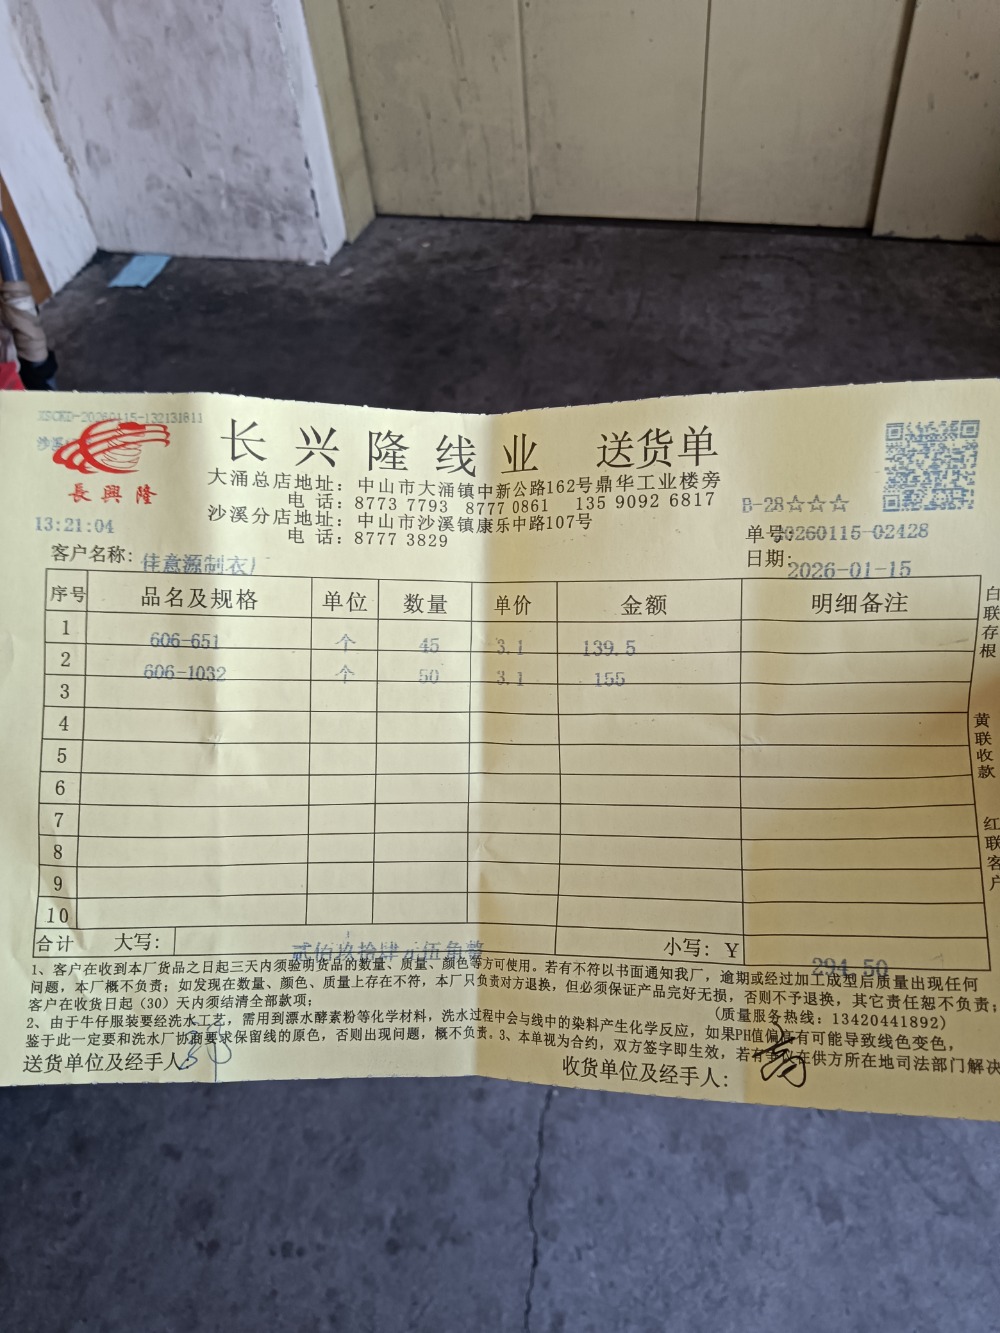 XSCKD-20260115-132131811
沙溪
長興隆
13:21:04
长兴隆线业 送货单
大涌总店地址：中山市大涌镇中新公路162号鼎华工业楼旁
电 话：8773 7793 8777 0861 135 9092 6817
沙溪分店地址：中山市沙溪镇康乐中路107号
电 话：8777 3829
B-28☆☆☆
单号：20260115-02428
客户名称：佳意源制衣厂
日期：2026-01-15
序号 品名及规格 单位 数量 单价 金额 明细备注
1 606-651 个 45 3.1 139.5
2 606-1032 个 50 3.1 155
3
4
5
6
7
8
9
10
合计 大写：贰佰玖拾肆元伍角整 小写：Y 294.50
白联存根
黄联收款
红联客户
1、客户在收到本厂货品之日起三天内须验明货品的数量、质量、颜色等方可使用。若有不符以书面通知我厂，逾期或经过加工成型后质量出现任何
问题，本厂概不负责；如发现在数量、颜色、质量上存在不符，本厂只负责对方退换，但必须保证产品完好无损，否则不予退换，其它责任恕不负责；
客户在收货日起（30）天内须结清全部款项； (质量服务热线：13420441892)
2、由于牛仔服装要经洗水工艺，需用到漂水酵素粉等化学材料，洗水过程中会与线中的染料产生化学反应，如果PH值偏高有可能导致线色变色，
鉴于此一定要和洗水厂协商要求保留线的原色，否则出现问题，概不负责。3、本单视为合约，双方签字即生效，若有争议在供方所在地司法部门解决
送货单位及经手人：
收货单位及经手人：